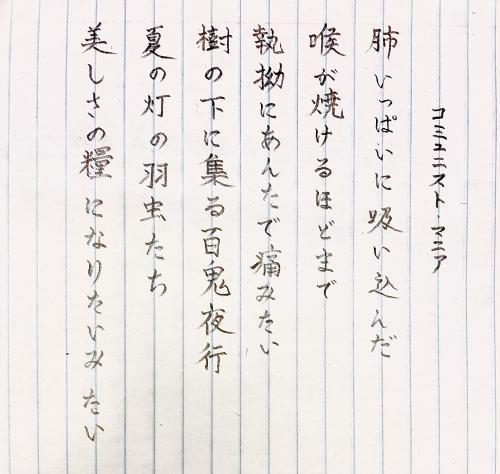 コミュニスト・マニア
肺いっぱいに吸い込んだ
喉が焼けるほどまで
執拗にあんたで痛みたい
樹の下に集る百鬼夜行
夏の灯の羽虫たち
美しさの糧になりたいみたい